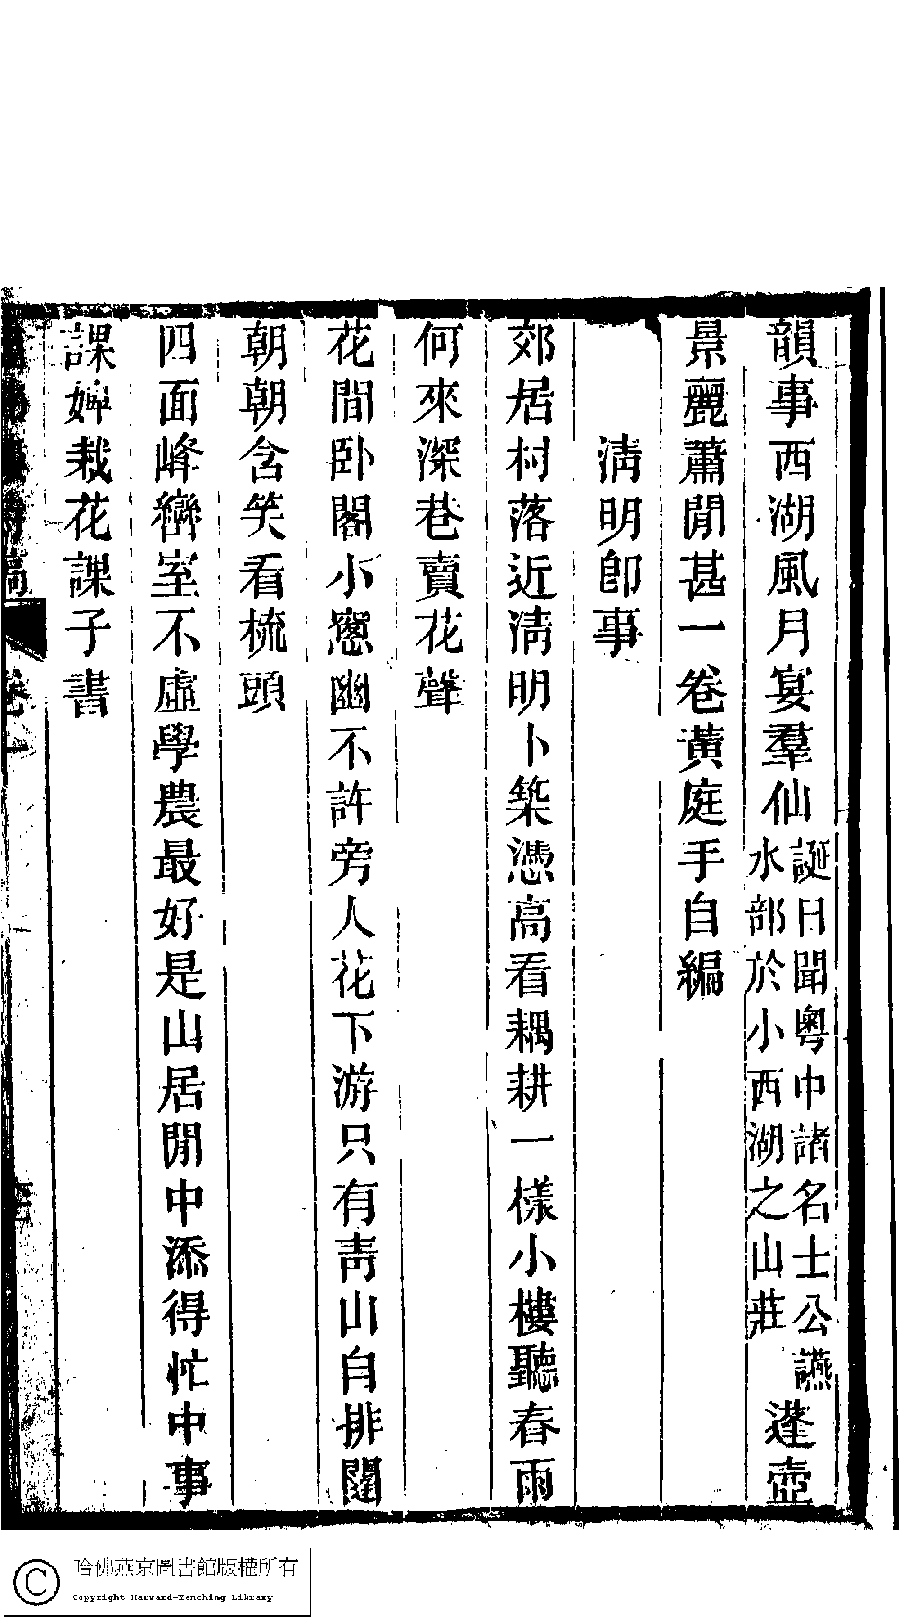 韻事西湖風月宴羣仙誕日聞粵中諸名士公讌水部於小西湖之山莊蓬壺
景麗蕭閒甚一卷黃庭手自編
清明即事
郊居村落近清明卜築憑高看耦耕一樣小樓聽春雨
何來深巷賣花聲
花間卧閣小窻幽不許旁人花下游只有青山自排闥
朝朝含笑看梳頭
四面峰巒室不虛學農最好是山居閒中添得忙中事
課婢栽花課子書
稿 卷一
哈佛燕京圖書館版權所有
Copyright Harvard-Yenching Library